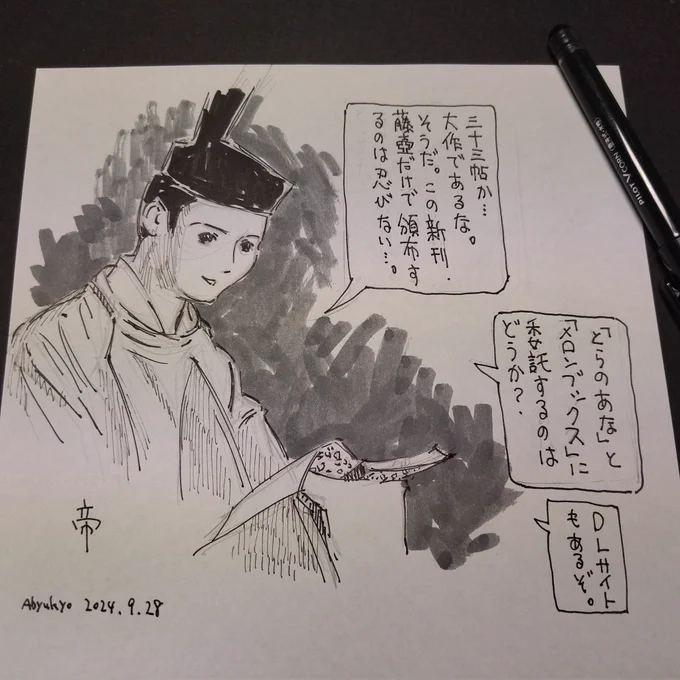 三十三帖か…
大作であるな。
そうだ。この新刊、
藤壺だけで頒布す
るのは忍びない…。
「とらのあな」と
「メロンブックス」に
委託するのは
どうか？
DLサイト
もあるぞ。
帝
Abyukyo 2024.9.28
PILOT V CORN